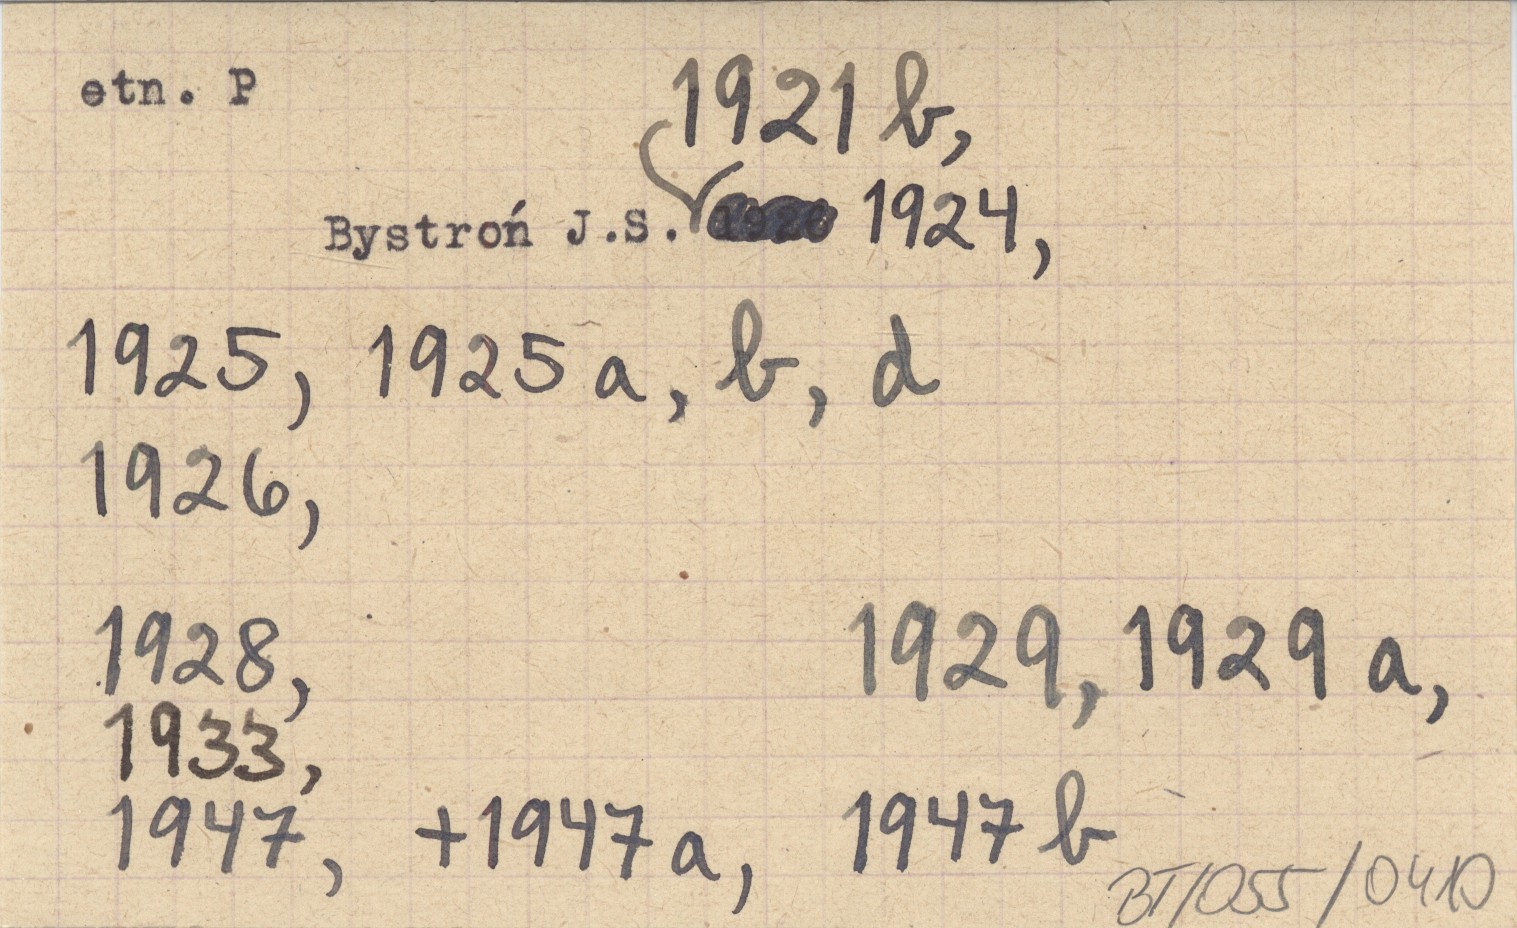 etn. P
1921 b,
Bystroń J.S. 1924,
1925, 1925 a, b, d
1926,
1928, 1929, 1929 a,
1933,
1947, +1947 a, 1947 b
BT/055/0410